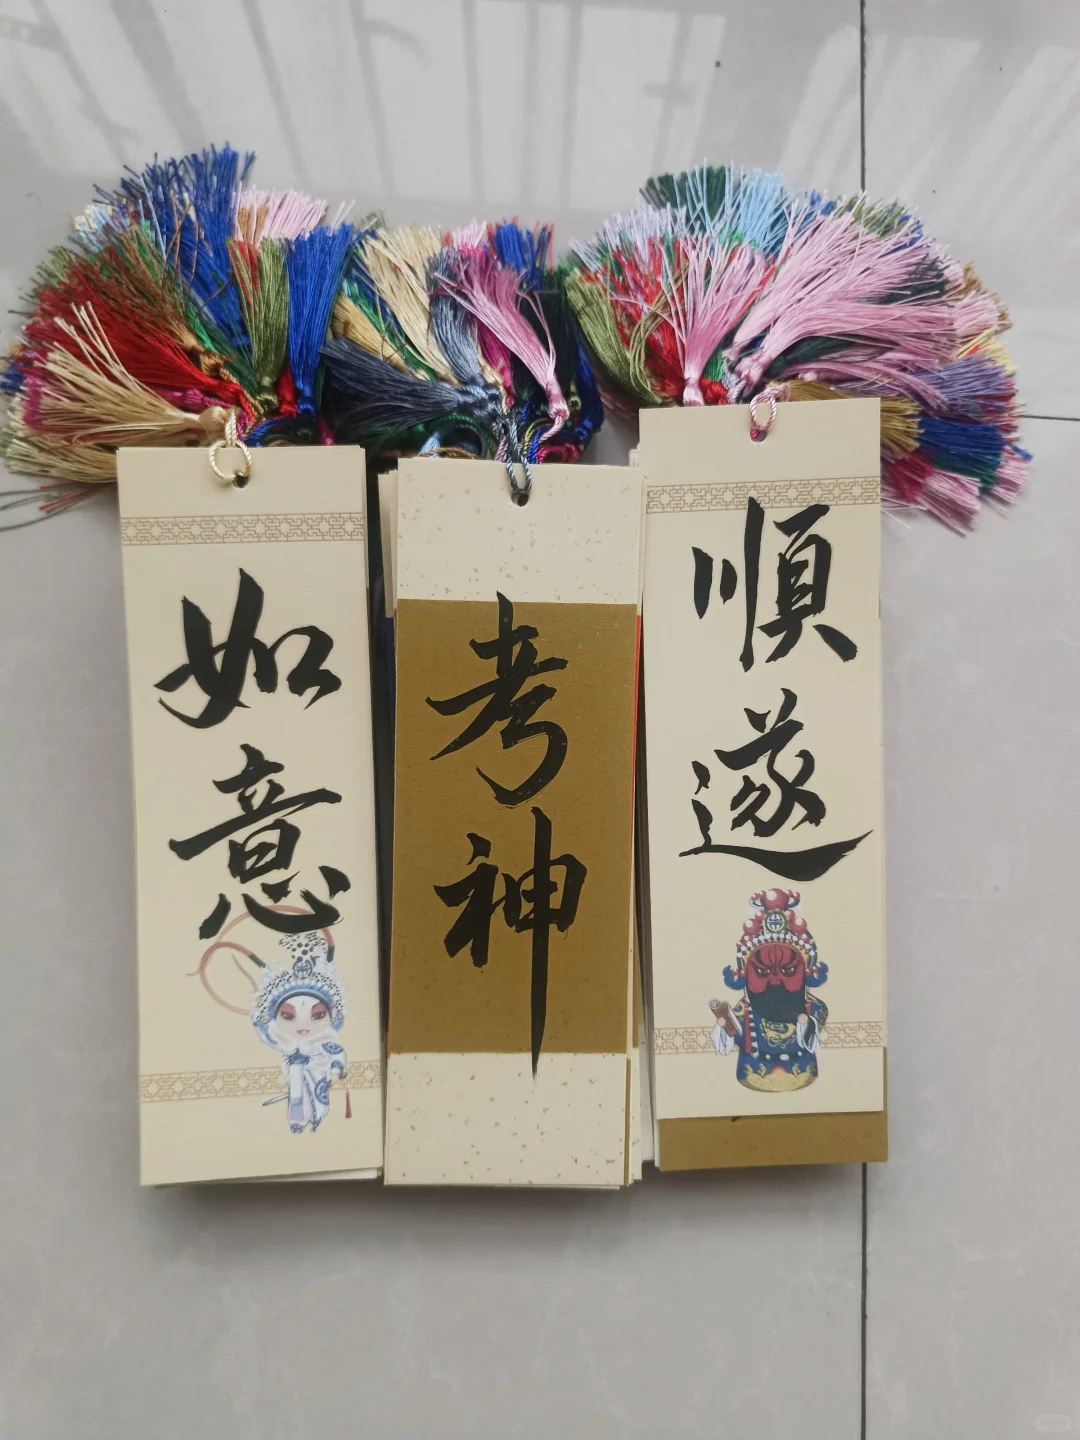 如意
考神
順遂